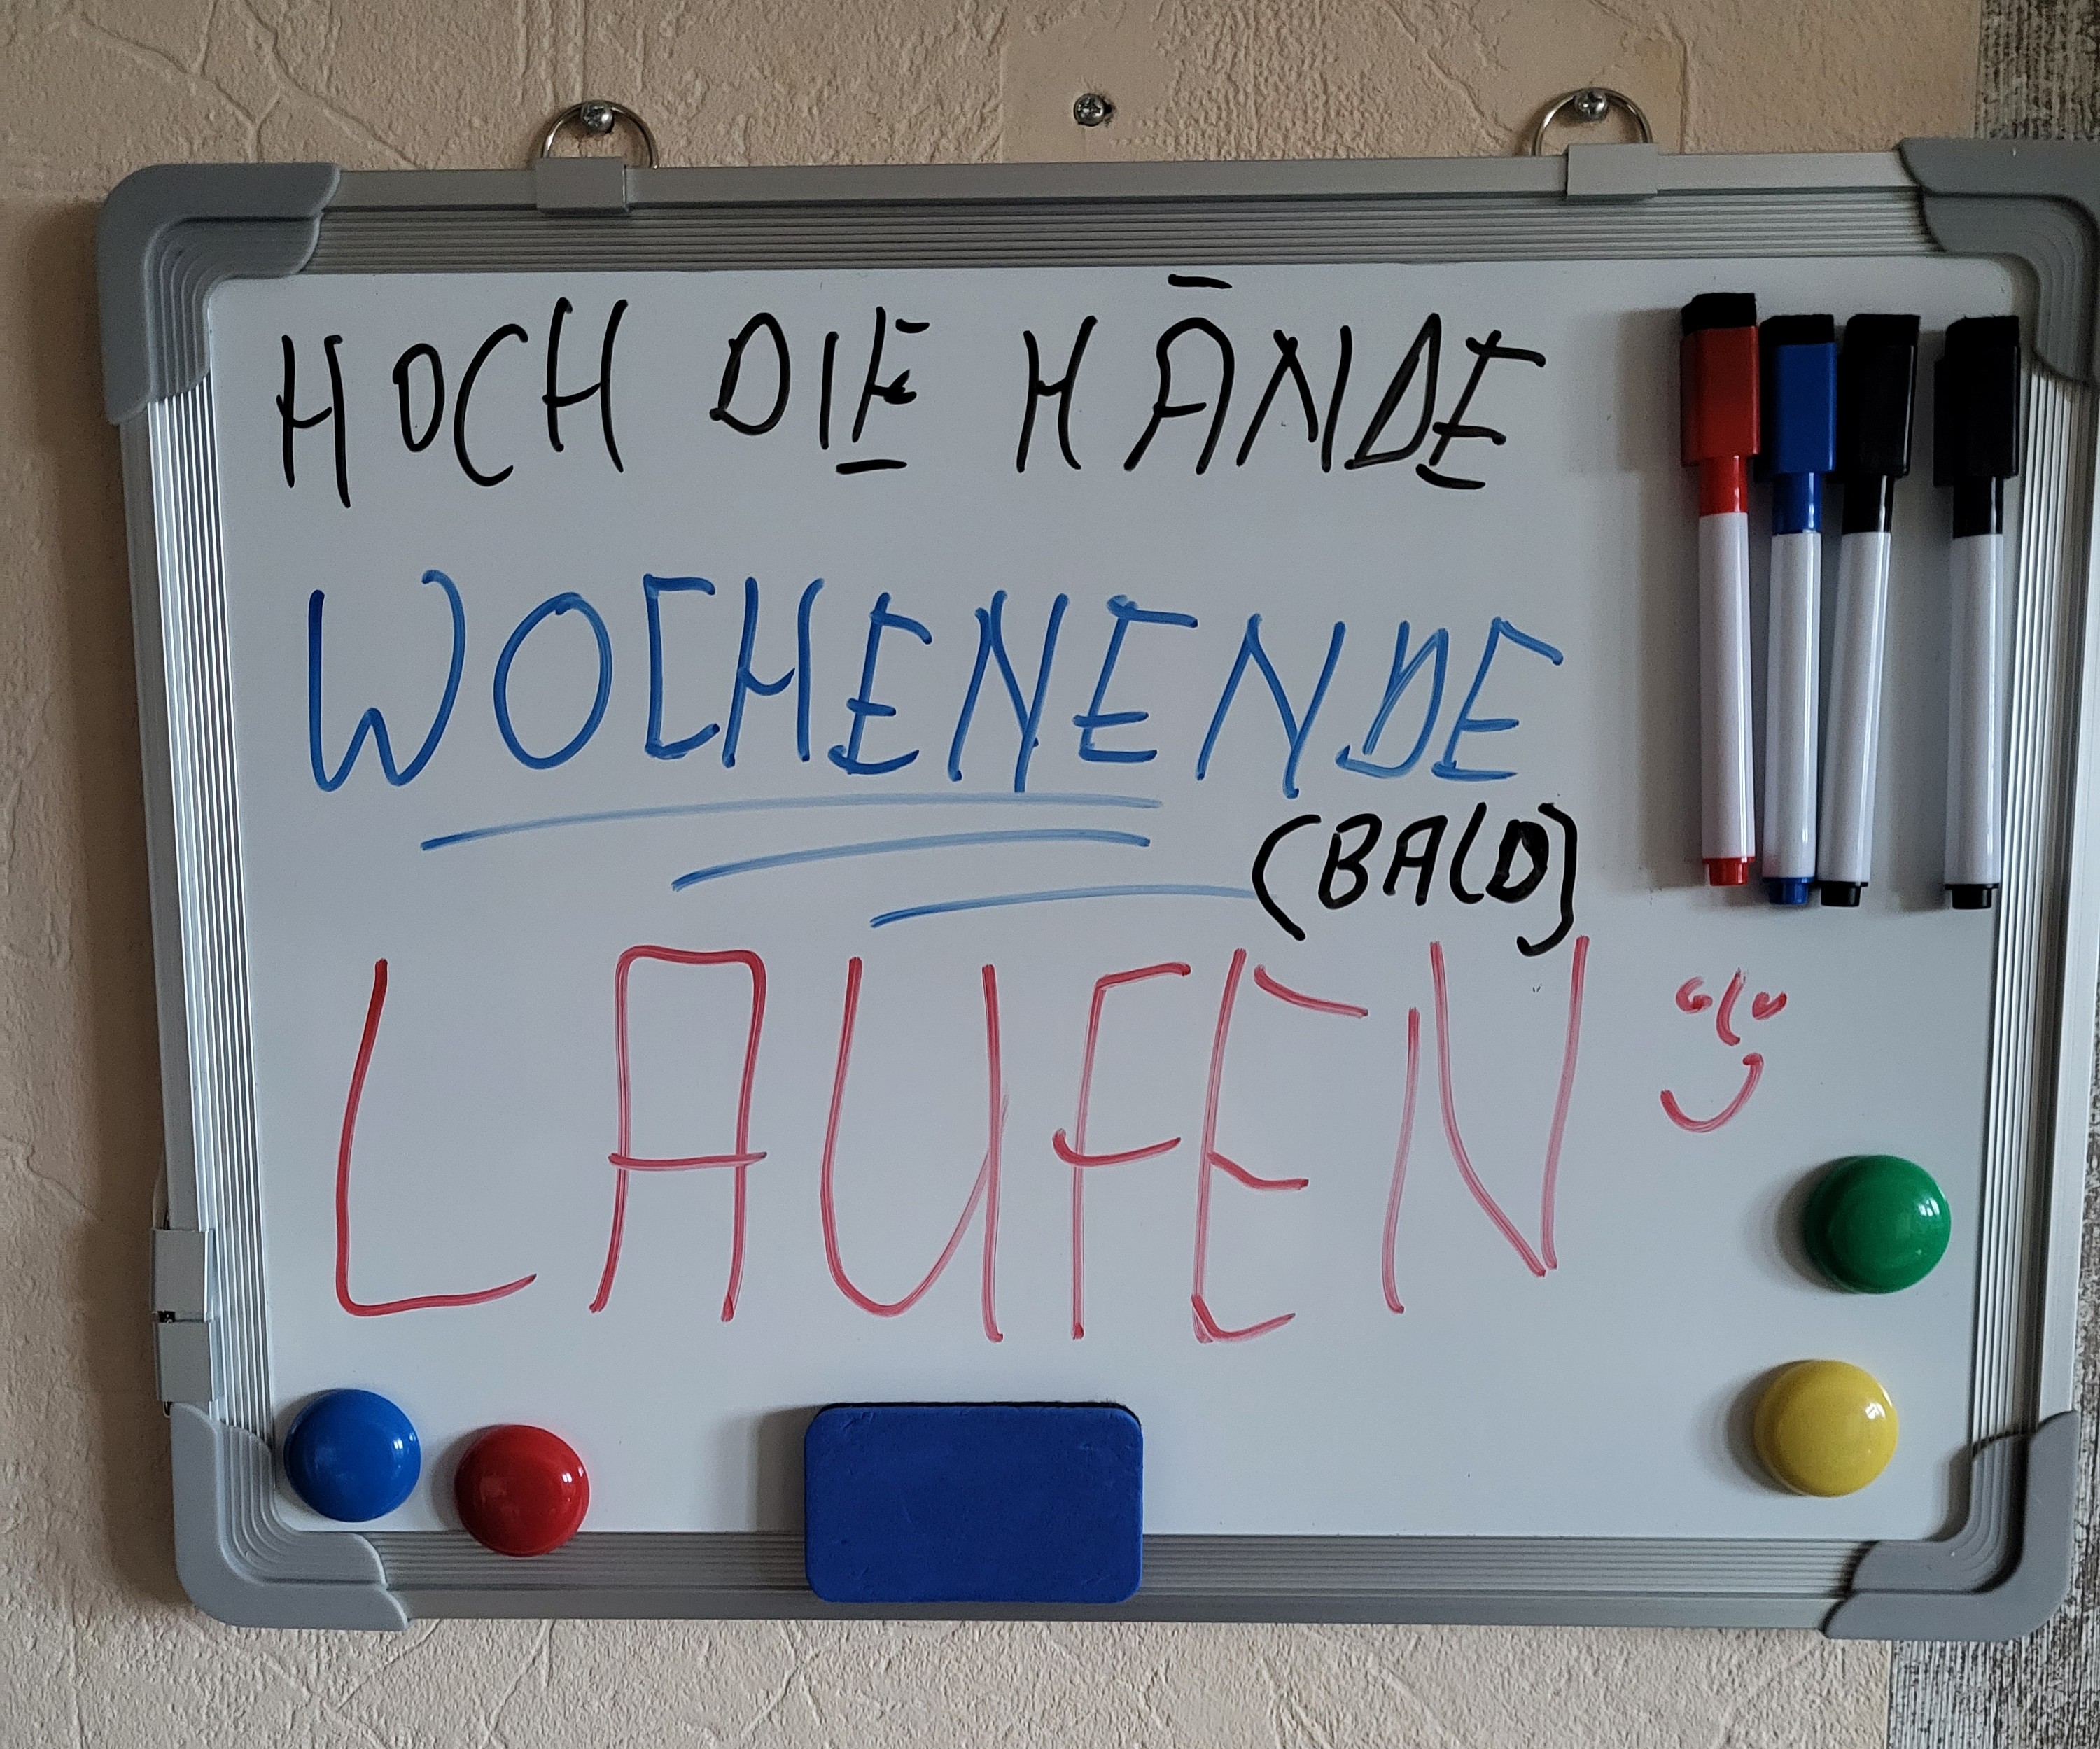 HOCH DIE HÄNDE
WOCHENENDE
(BALD)
LAUFEN